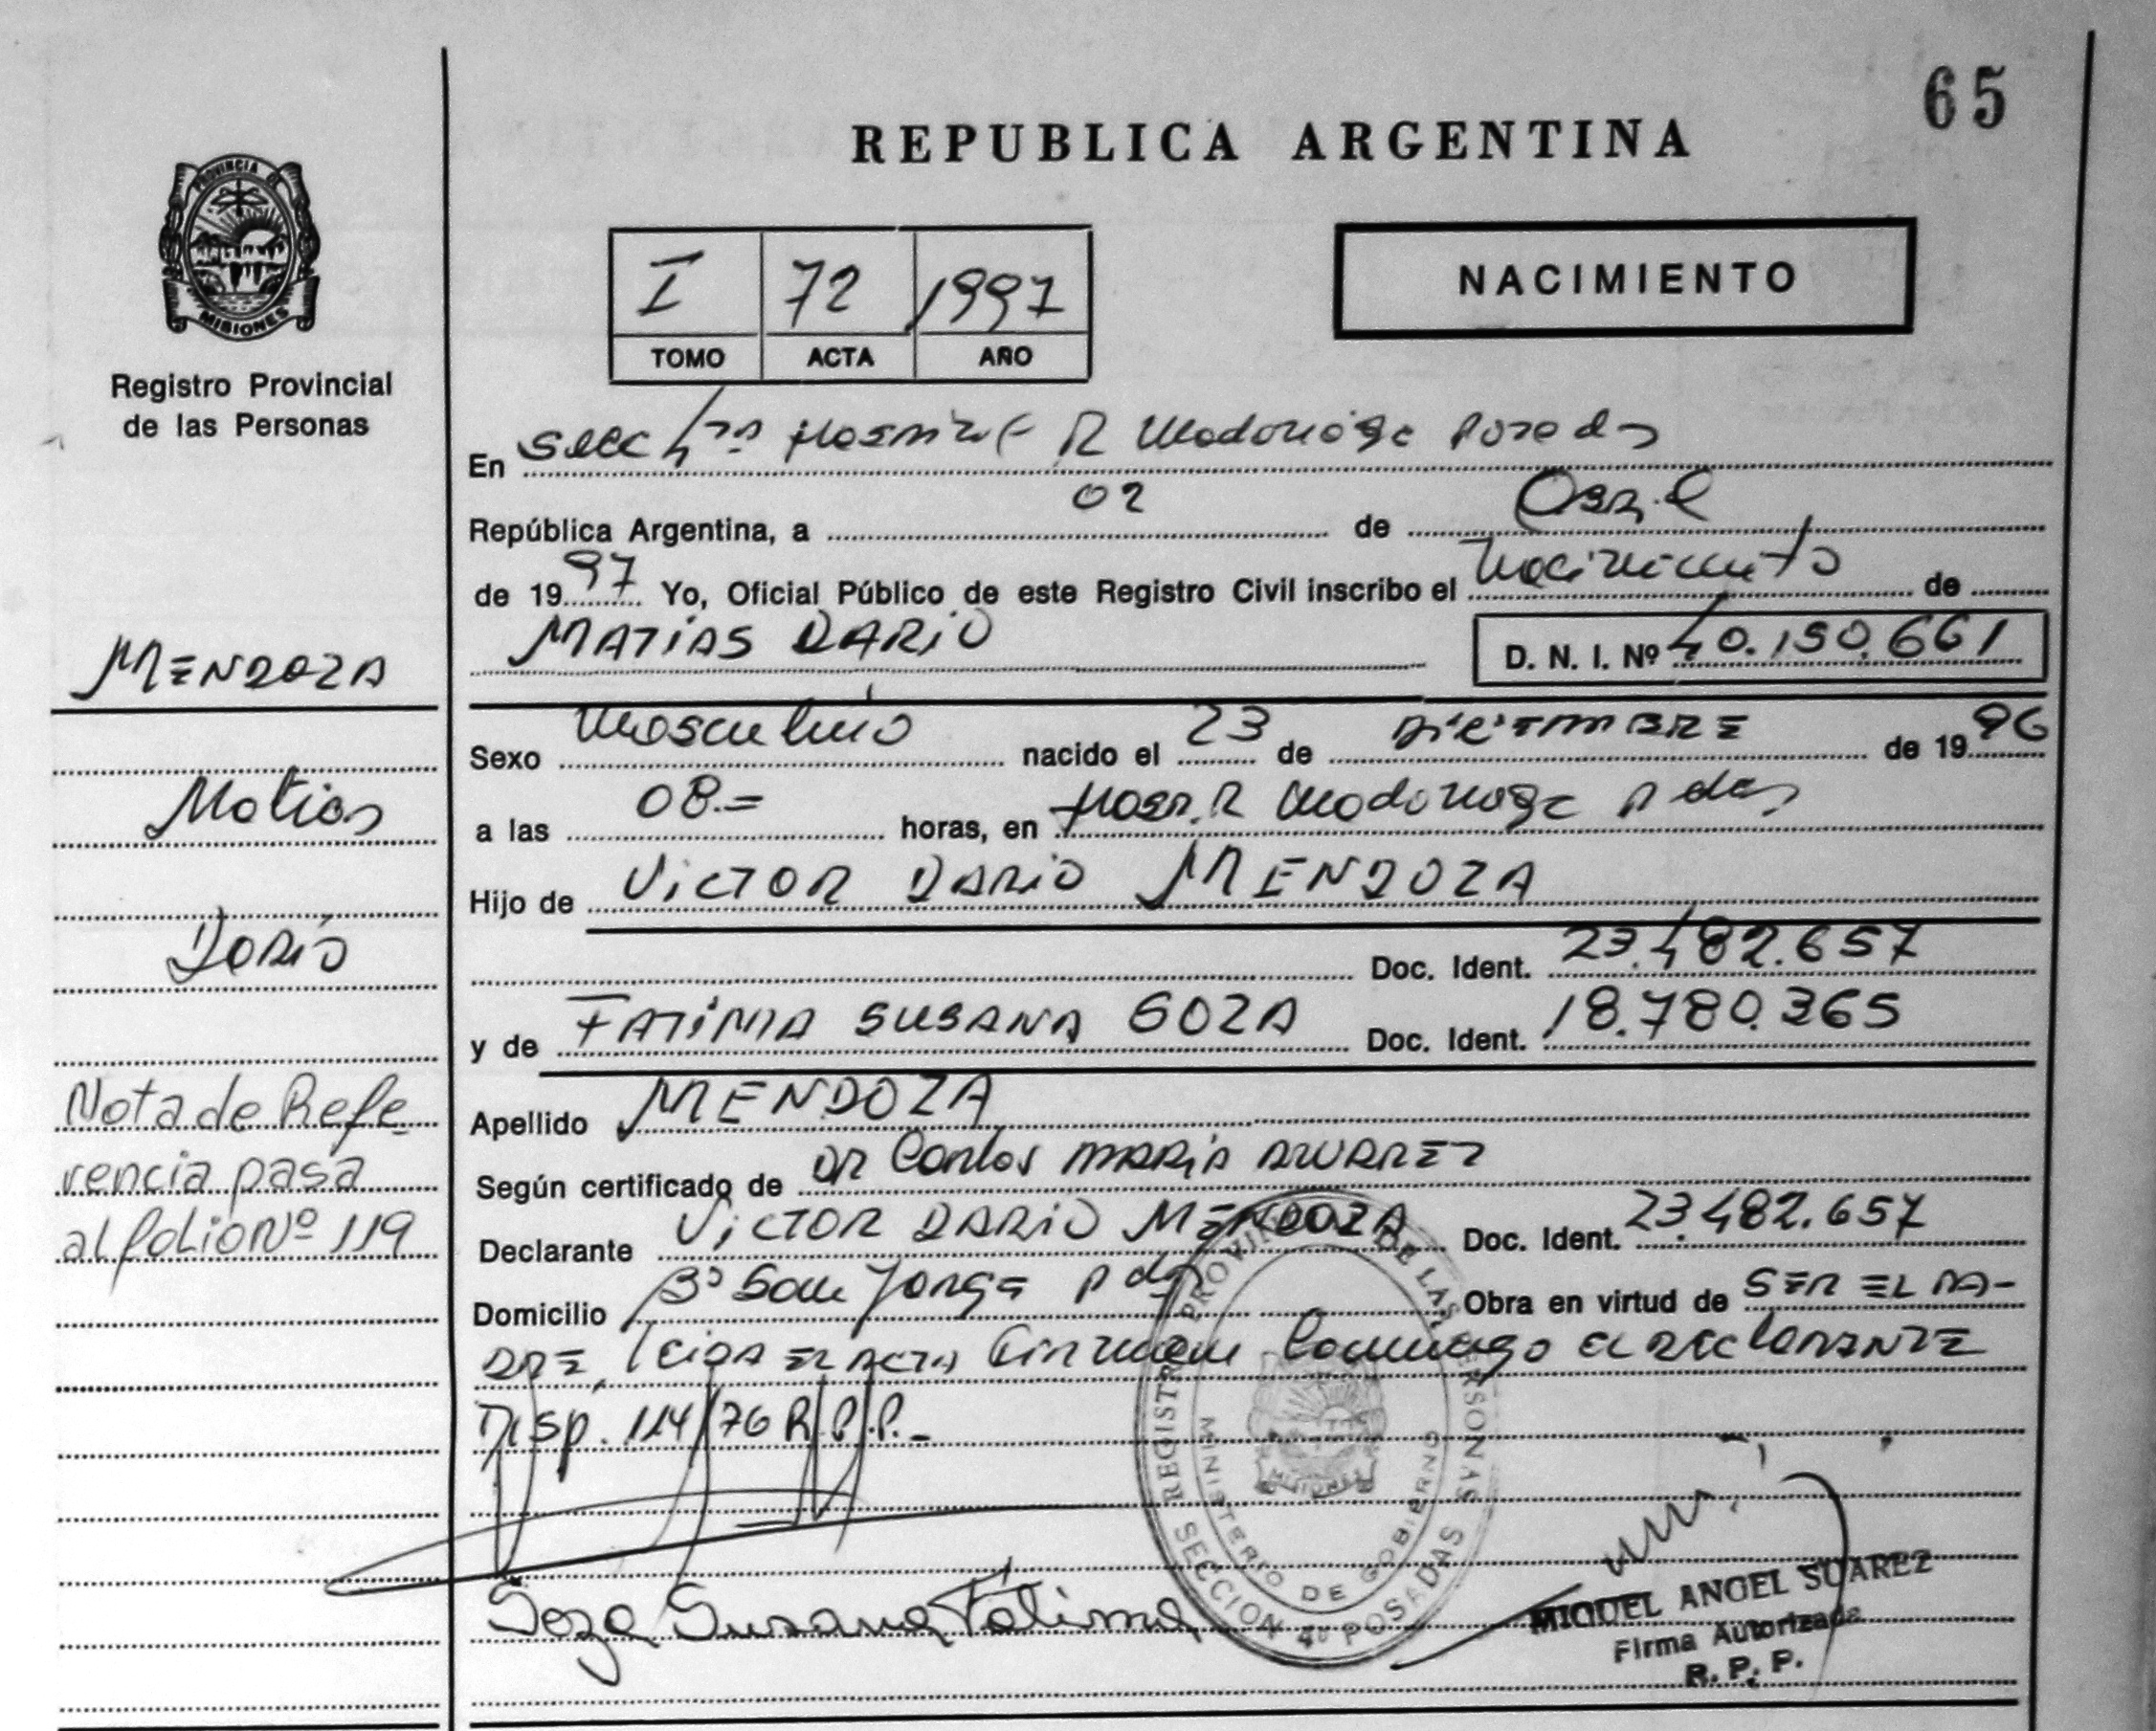 65
REPUBLICA ARGENTINA
PROVINCIA DE
MISIONES
Registro Provincial
de las Personas
I 72 1997
TOMO ACTA AÑO
NACIMIENTO
En Secc 4ta R Madariaga Posadas
República Argentina, a 02 de Abril
de 1997 Yo, Oficial Público de este Registro Civil inscribo el Nacimiento de
MENDOZA
MATIAS DARIO D. N. I. Nº 40.150.661
Sexo Masculino nacido el 23 de DICIEMBRE de 1996
Matias
a las 08.= horas, en Hosp. R Madariaga Pdas
Hijo de VICTOR DARIO MENDOZA
Dario
Doc. Ident. 23.482.657
y de FATIMA SUSANA SOZA Doc. Ident. 18.780.365
Nota de Refe-
rencia pasa
al folio Nº 119
Apellido MENDOZA
Según certificado de DR Carlos MARIA ALVAREZ
Declarante VICTOR DARIO MENDOZA Doc. Ident. 23.482.657
Domicilio Bº San Jorge Pdas Obra en virtud de SER EL PA-
DRE, leida EL ACTA Firman Conmigo el DECLARANTE
Disp. 114/76 R.P.P.-
REGISTRO PROVINCIAL DE LAS PERSONAS
MINISTERIO DE GOBIERNO
SECCION 4ª POSADAS
Soza Susana Fátima
MIGUEL ANGEL SUAREZ
Firma Autorizada
R. P. P.